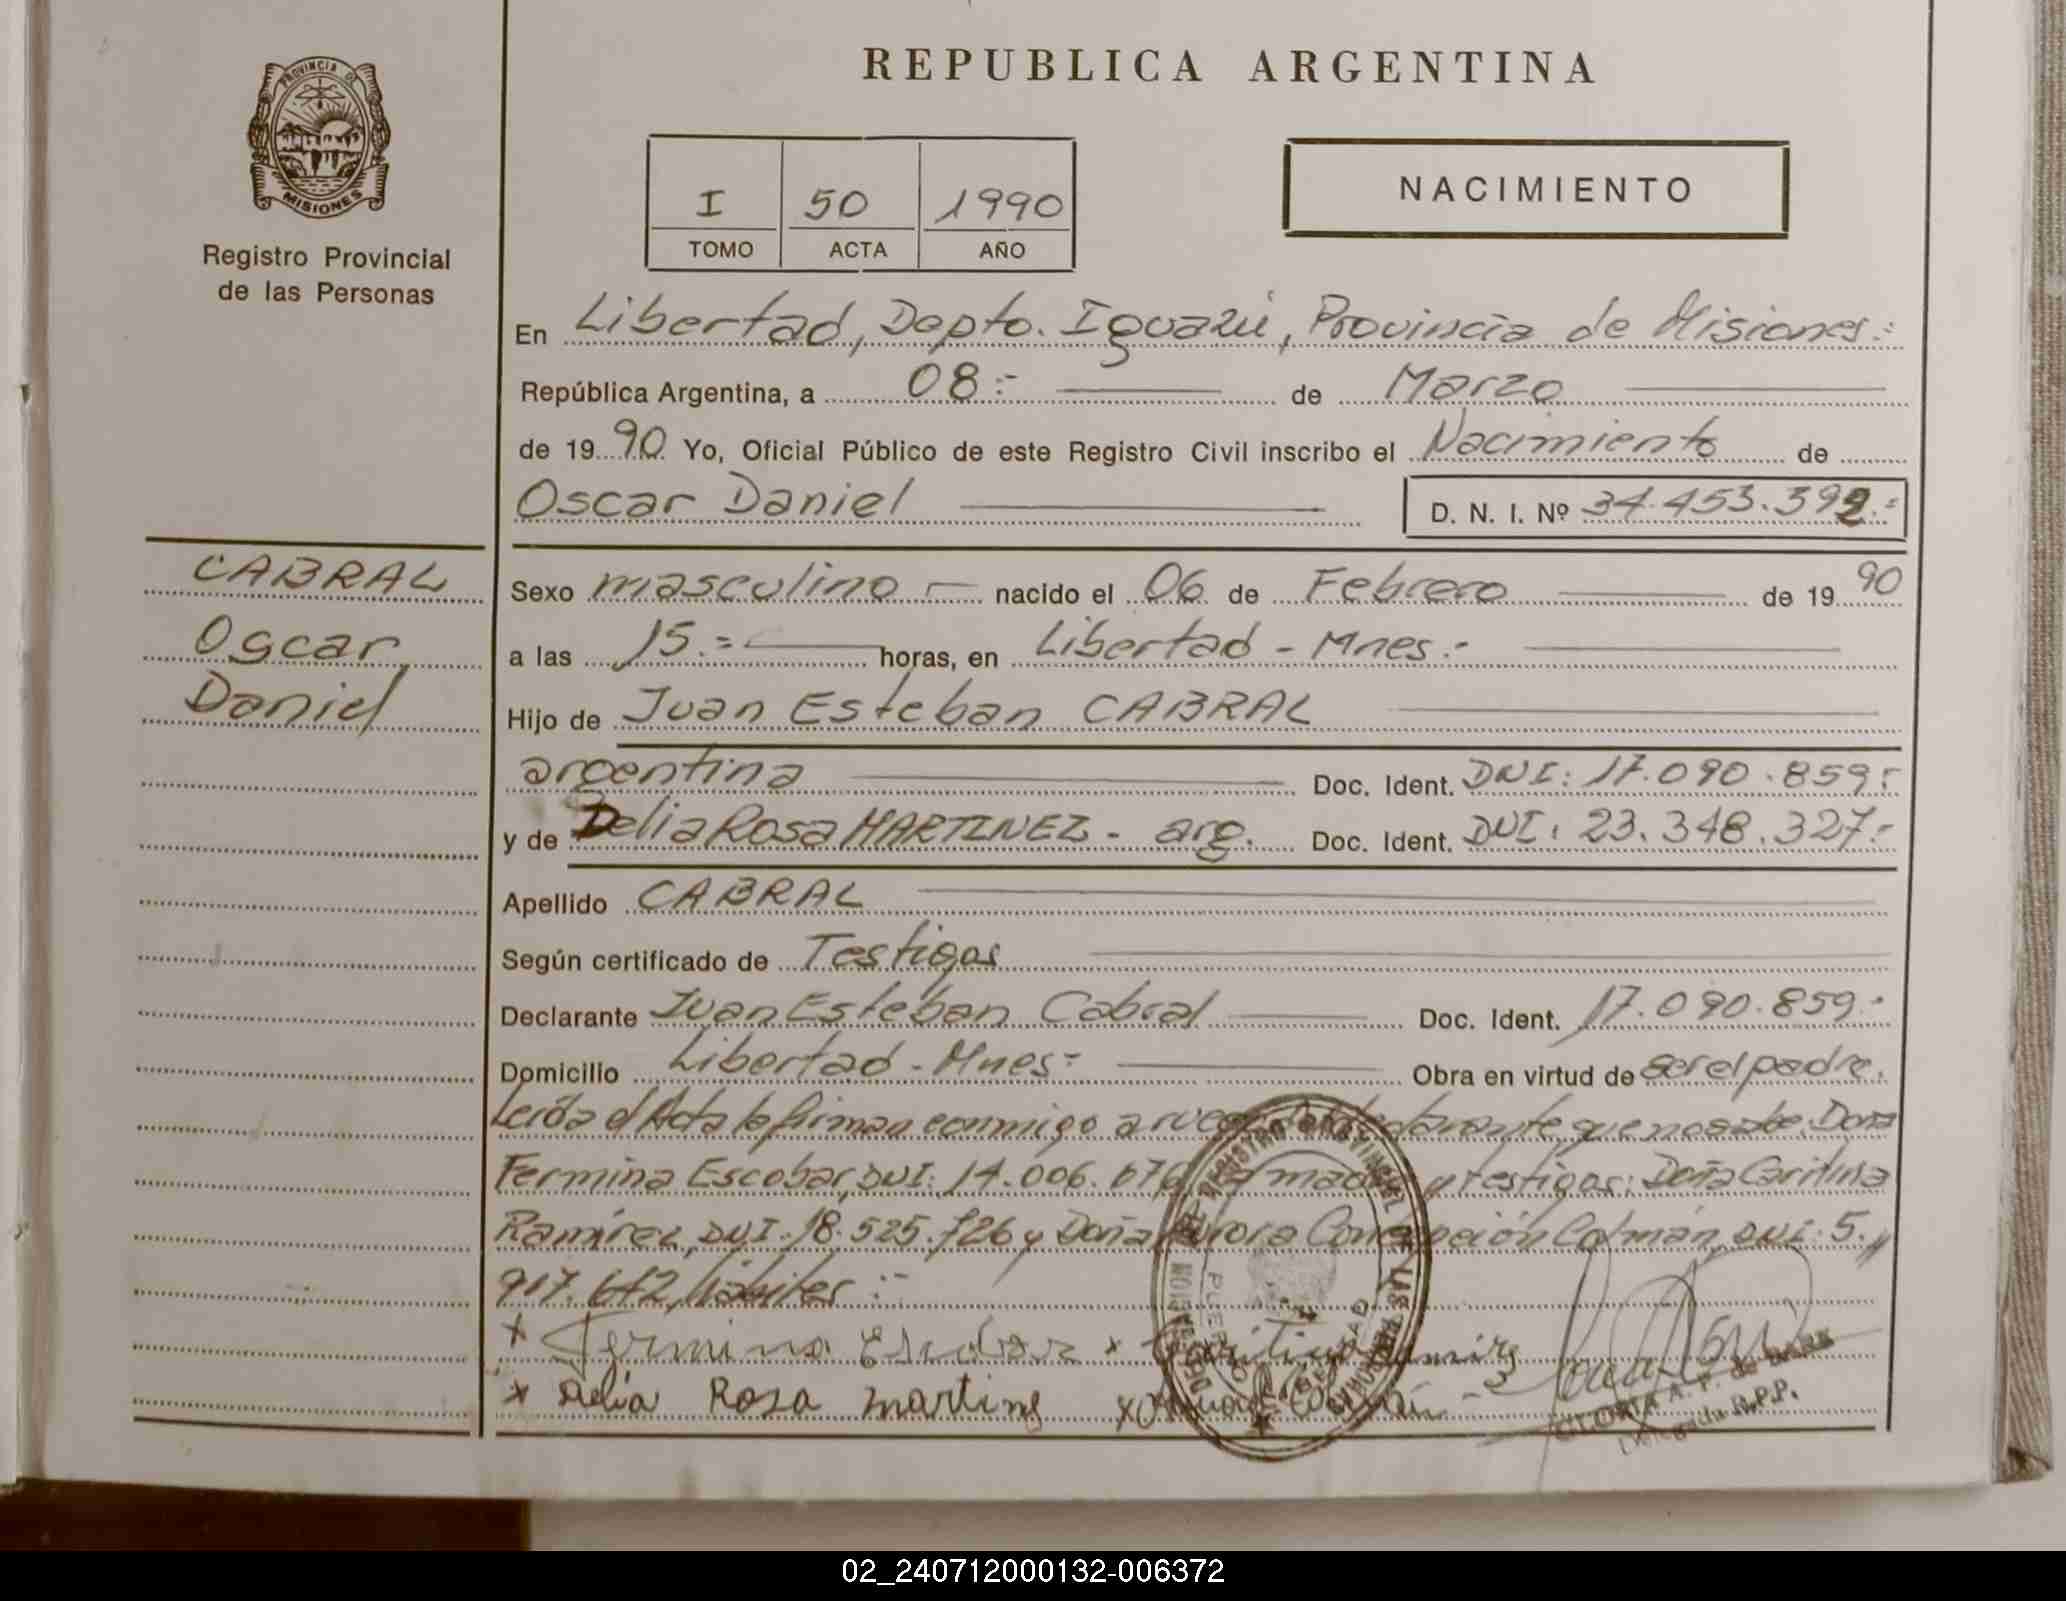 REPUBLICA ARGENTINA
PROVINCIA DE
MISIONES
Registro Provincial
de las Personas
I 50 1990
TOMO ACTA AÑO
NACIMIENTO
En Libertad, Depto. Iguazú, Provincia de Misiones.-
República Argentina, a 08.- de Marzo
de 1990 Yo, Oficial Público de este Registro Civil inscribo el Nacimiento de
Oscar Daniel D. N. I. Nº 34.453.392.-
CABRAL
Oscar
Daniel
Sexo masculino nacido el 06 de Febrero de 1990
a las 15.= horas, en Libertad - Mnes.-
Hijo de Juan Esteban CABRAL
argentina Doc. Ident. DNI: 17.090.859.-
y de Delia Rosa MARTINEZ - arg. Doc. Ident. DNI: 23.348.327.-
Apellido CABRAL
Según certificado de Testigos
Declarante Juan Esteban Cabral Doc. Ident. 17.090.859.-
Domicilio Libertad - Mnes.- Obra en virtud de ser el padre.
Leída el Acta lo firman conmigo a ruego que no sabe. Doña
Fermina Escobar, DNI: 14.006. la madre y testigos: Doña Caritina
Ramírez, DNI. 18.525.726 y Doña Aurora Concepción Colmán, DNI: 5.
917.642, hábiles.-
x Fermina Escobar x Caritina Ramirez
x Delia Rosa martines x Aurora Colmán
GLORIA A. P. de
Delegada R.P.P.
02_240712000132-006372